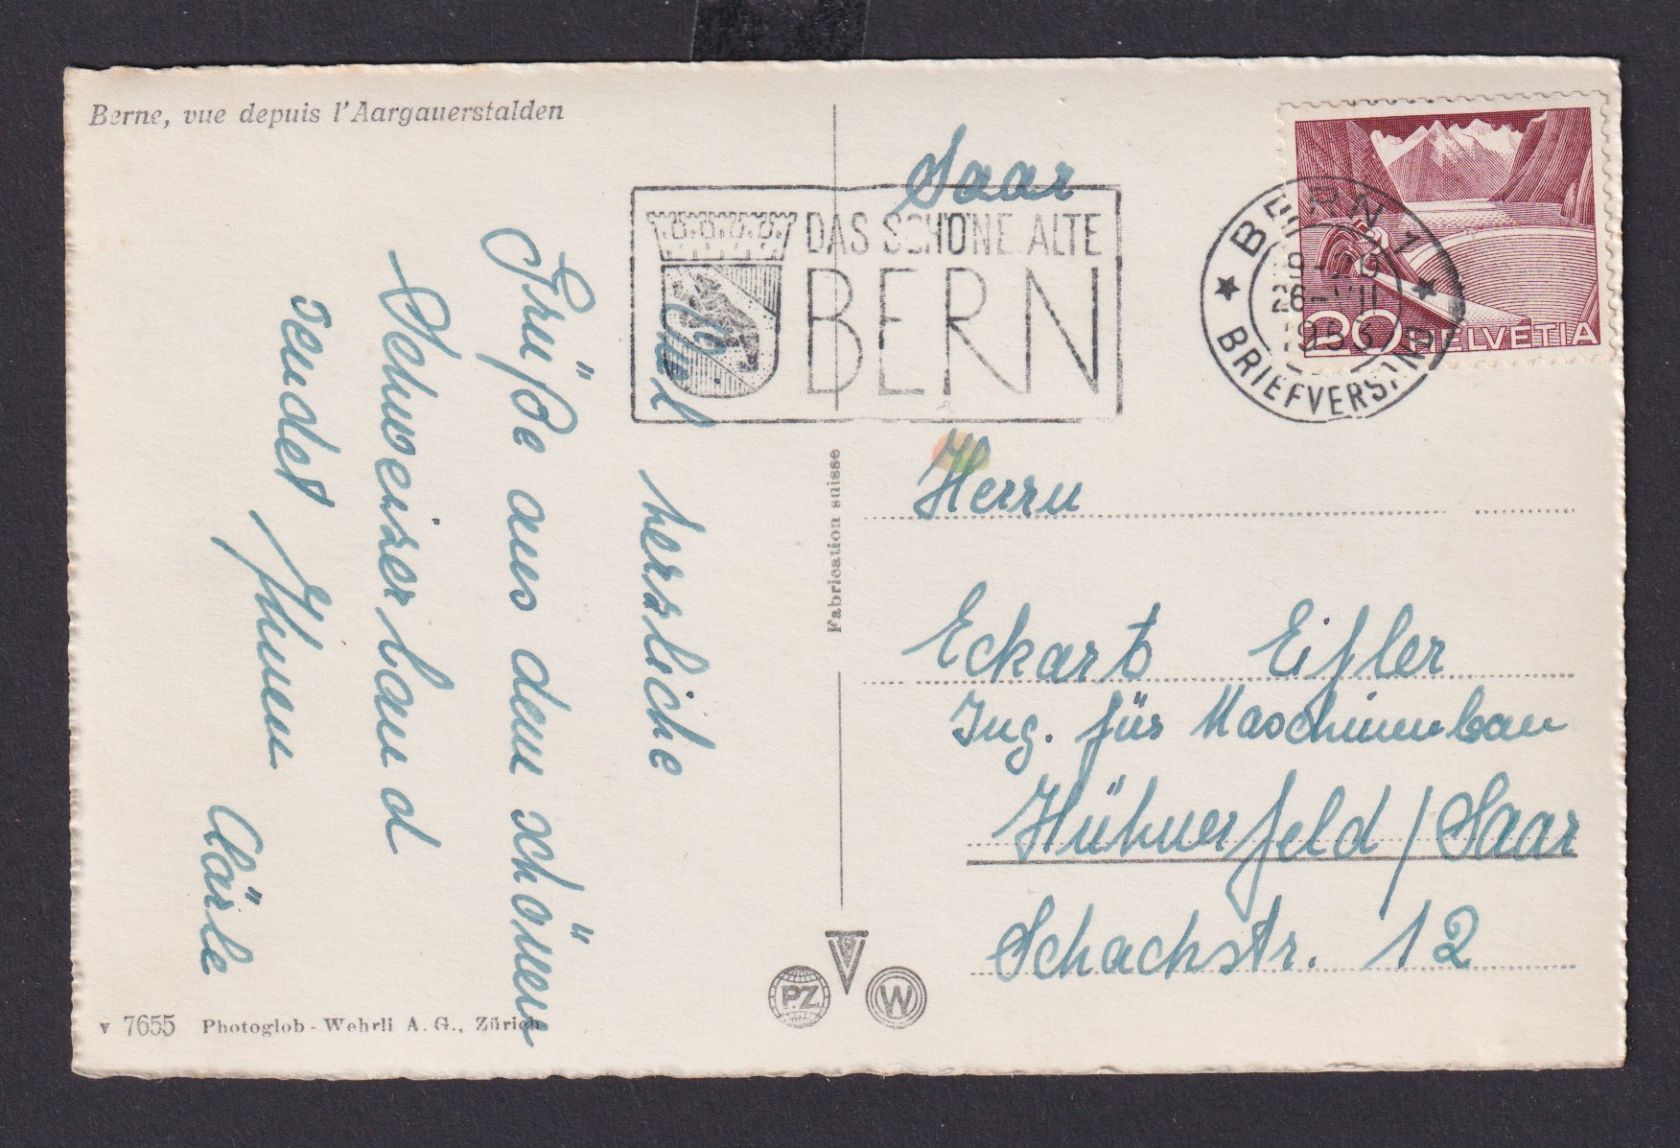 Berne, vue depuis l'Aargauerstalden
Saar
DAS SCHÖNE ALTE
BERN
BERN 1
1953
BRIEFVERSAND
20 HELVETIA
herzliche
Grüße aus dem schönen
Schweizerland
sendet Ihnen
Clärle
Fabrication suisse
Herrn
Eckart Eifler
Ing. für Maschinenbau
Hühnerfeld / Saar
Schachstr. 12
PZ
W
v 7655 Photoglob-Wehrli A. G., Zürich